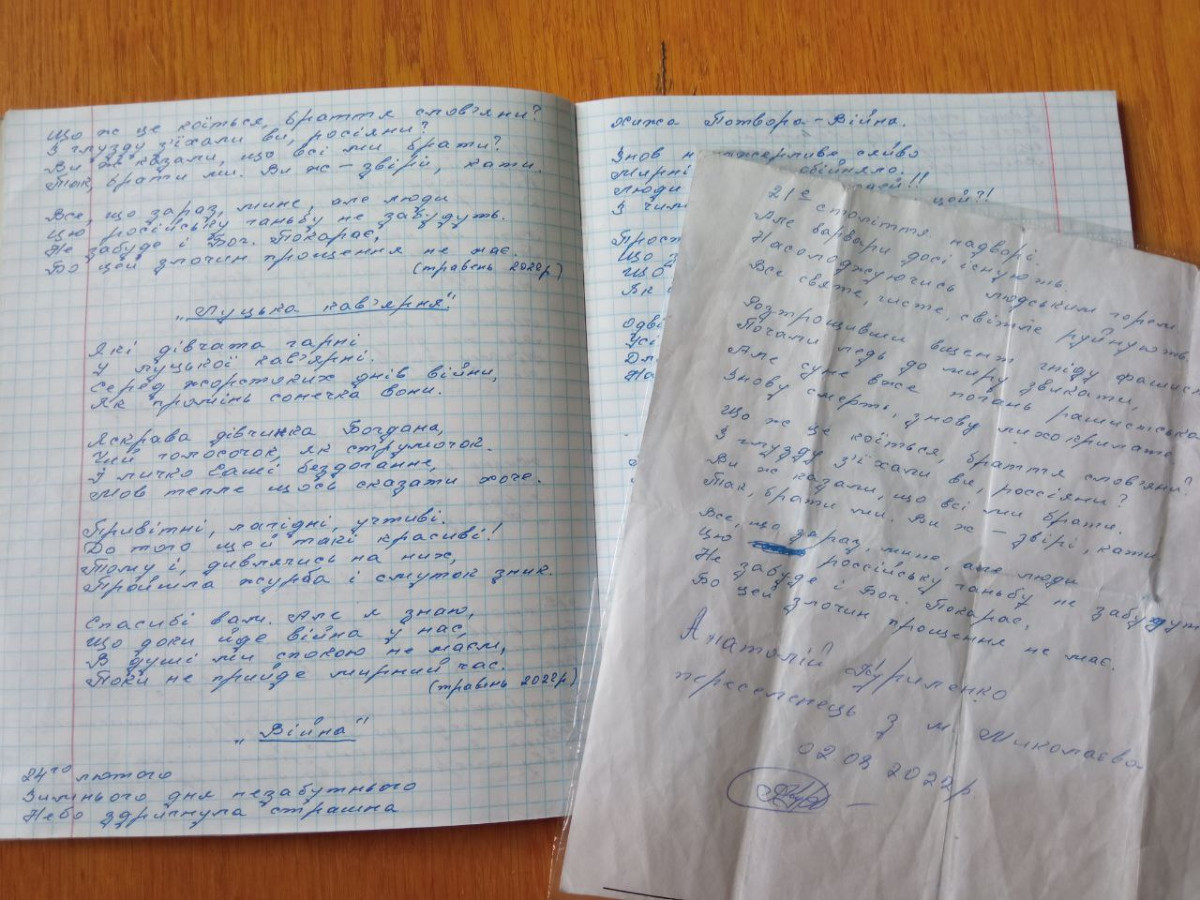 Що ж це коїться, браття слов'яни?
З глузду з'їхали ви, росіяни?
Ви ж казали, що всі ми брати?
Так, брати ми. Ви ж – звірі, кати.
Все, що зараз, мине, але люди
Цю російську ганьбу не забудуть.
Не забуде і Бог. Покарає,
Бо цей злочин прощення не має.
(травень 2022р)
"Луцька кав'ярня"
Які дівчата гарні
У луцькой кав'ярні.
Серед жорстоких днів війни,
Як промінь сонечка вони.
Яскрава дівчинка Богдана,
Чий голосочок, як струмочок.
І личко Саші бездоганне,
Мов тепле щось сказати хоче.
Привітні, лагідні, учтиві.
До того щей такі красиві!
Тому і, дивлячись на них,
Пройшла журба і смуток зник.
Спасибі вам. Але я знаю,
Що доки йде війна у нас,
В душі ми спокою не маєм,
Поки не прийде мирний час.
(травень 2022р)
"Війна"
24го лютого
Зимнього дня незабутнього
Небо здригнула страшна
Хижа Потвора – Війна.
Знов сяйво
Мирні обійняло.
Люди
цей?!
З
Прост
Що
Що
Як
Одві
Усі
21е століття надворі.
Але варвари досі існують.
Насолоджуючись людським горем
Все святе, чисте, світле руйнують.
Розтрощивши вщент гніду фашис
Почали ледь до миру звикати,
Але суне вже погань рашистська
Знову смерть, знову лихо
Що ж це коїться, браття слов'яни?
З глузду з'їхали ви, россіяни?
Ви ж казали, що всі ми брати.
Так, брати ми. Ви ж – звірі, кати
Все, що зараз, мине, але люди
Цю россійську ганьбу не забудут
Не забуде і Бог. Покарає,
Бо цей злочин прощення не має.
Анатолій Куриленко
переселенець з м. Миколаєва
02 09 2022р